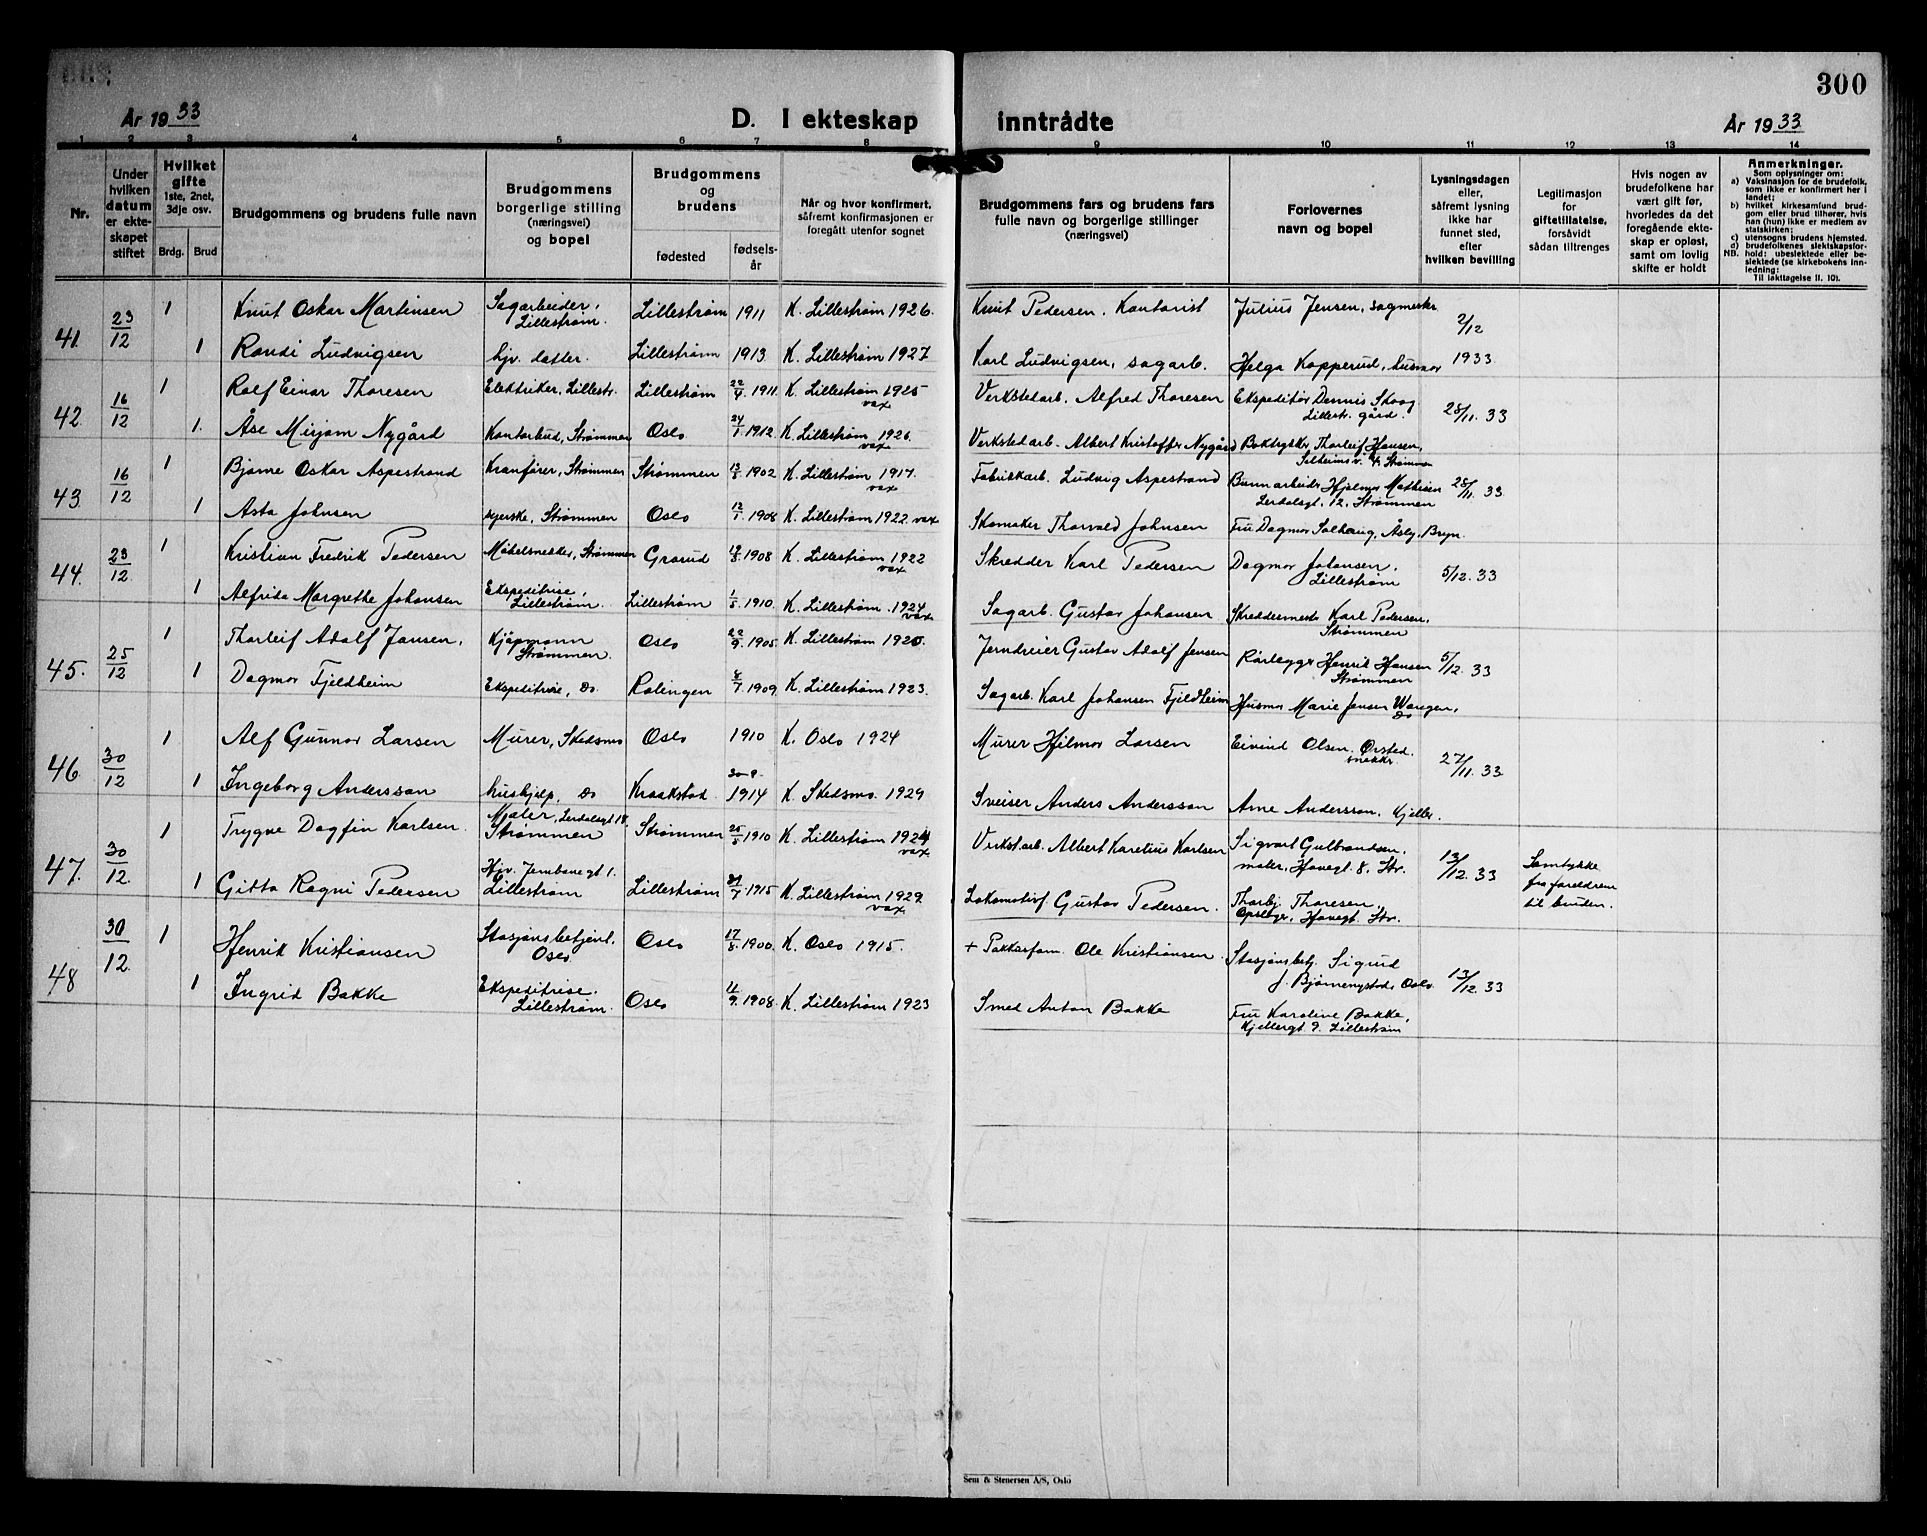 300
År 19 33
D. I ekteskap inntrådte
År 19 33.
1 2 3 4 5 6 7 8 9 10 11 12 13 14
Nr.
Under hvilken datum er ekte-skapet stiftet
Hvilket gifte 1ste, 2net, 3dje osv.
Brdg. Brud
Brudgommens og brudens fulle navn
Brudgommens borgerlige stilling (næringsvei) og bopel
Brudgommens og brudens
fødested
fødsels-år
Når og hvor konfirmert, såfremt konfirmasjonen er foregått utenfor sognet
Brudgommens fars og brudens fars fulle navn og borgerlige stillinger (næringsvei)
Forlovernes navn og bopel
Lysningsdagen eller, såfremt lysning ikke har funnet sted, efter hvilken bevilling
Legitimasjon for giftetillatelse, forsåvidt sådan tiltrenges
Hvis nogen av brudefolkene har vært gift før, hvorledes da det foregående ekte-skap er opløst, samt om lovlig skifte er holdt
Anmerkninger.
Som oplysninger om:
a) Vaksinasjon for de brudefolk, som ikke er konfirmert her i landet;
b) hvilket kirkesamfund brud-gom eller brud tilhører, hvis han (hun) ikke er medlem av statskirken;
c) utensogns brudens hjemsted.
d) brudefolkenes slektskapsfor-hold: ubeslektede eller be-slektede (se kirkebokens inn-ledning;
NB. Til iakttagelse II. 10).
41. 23/12 1 Knut Oskar Martinsen Sagarbeider, Lillestrøm. Lillestrøm 1911 K. Lillestrøm 1926. Knut Pedersen. Kontorist Julius Jensen, sagmester 2/12 1933
1 Randi Ludvigsen hjv. datter. Lillestrøm 1913 K. Lillestrøm 1927 Karl Ludvigsen, sagarb. Helga Kopperud, husmor
42. 16/12 1 Rolf Einar Thoresen Elektriker, Lillestr. Lillestrøm 22/4 1911 K. Lillestrøm 1925 vax Verkstedarb. Alfred Thoresen Ekspeditør Dennis Skoog Lillestr. gård. 28/11. 33
1. Åse Mirjam Nygård Kontorbud, Strømmen Oslo 24/1 1912 K. Lillestrøm 1926. vax Verkstedarb. Albert Kristoffer Nygård Boktrykker Thorleif Hansen, Strømmen
43. 16/12 1 Bjarne Oskar Aspestrand Kranfører, Strømmen Strømmen 13/8 1902 K. Lillestrøm 1917. vax Fabrikkarb. Ludvig Aspestrand Hjalmar Mathisen Lerdalsgt. 12, Strømmen 28/11. 33
1 Asta Johnsen syerske, Strømmen Oslo 12/1 1908 K. Lillestrøm 1922 vax Skomaker Thorvald Johnsen Fru Dagmar Solhaug, Åsly, Bryn.
44. 23/12. 1 Kristian Fredrik Pedersen Møbelsnekker, Strømmen Grorud 19/8 1908 K. Lillestrøm 1922 vax Skredder Karl Pedersen Dagmar Johansen, Lillestrøm 5/12. 33
1 Alfrida Margrethe Johansen Ekspeditrise, Lillestrøm. Lillestrøm 1/5 1910. K. Lillestrøm. 1924 vax Sagarb. Gustav Johansen Skreddermester Karl Pedersen, Strømmen
45. 25/12 1 Thorleif Adolf Jansen, Kjøpmann Strømmen. Oslo 22/9 1905 K. Lillestrøm 1920. Jerndreier Gustav Adolf Jensen Rørlegger Henrik Hansen Strømmen 5/12. 33
1 Dagmar Fjeldheim Ekspeditrise, Do Rælingen 8/7 1909. K. Lillestrøm 1923. Sagarb. Karl Johansen Fjeldheim Husmor Marie Jensen Wangen, Do
46. 30/12 1 Alf Gunnar Larsen Murer, Skedsmo Oslo 1910 K. Oslo 1924 Murer Hilmar Larsen Eivind Olsen. Ørsted. snekker 27/11. 33
1 Ingeborg Andersson hushjelp, Do Kraakstad 30-9- 1914 K. Skedsmo. 1929 Sveiser Anders Andersson Arne Andersson, Kjeller.
47. 30/12. 1 Trygve Dagfin Karlsen. Maler, Lerdalsgt 18 Strømmen Strømmen 25/5 1910 K. Lillestrøm 1924 vax Verkst.arb. Albert Karelius Karlsen Sigvart Gulbrandsen, maler, Hovegt. 8. Str. 13/12. 33 Samtykke fra foreldrene til bruden.
1 Gitta Ragni Pedersen Hjv. Jernbanegt 1. Lillestrøm Lillestrøm 1915 K. Lillestrøm 1929 vax Lokomotivf. Gustav Pedersen. Thorbj. Thoresen, Hovegt. Str.
48 30/12. 1 Henrik Kristiansen Stasjonsbetjent. Oslo. Oslo 17/8 1900. K. Oslo 1915. + Pakkerform. Ole Kristiansen. Stasjonsbetj. Sigurd J. Oslo. 13/12. 33
1 Ingrid Bakke Ekspeditrise. Lillestrøm. Oslo 11/9. 1908. K. Lillestrøm 1923 Smed Anton Bakke Fru Karoline Bakke, Kjellergt 9. Lillestrøm
Sem & Stenersen A/S, Oslo